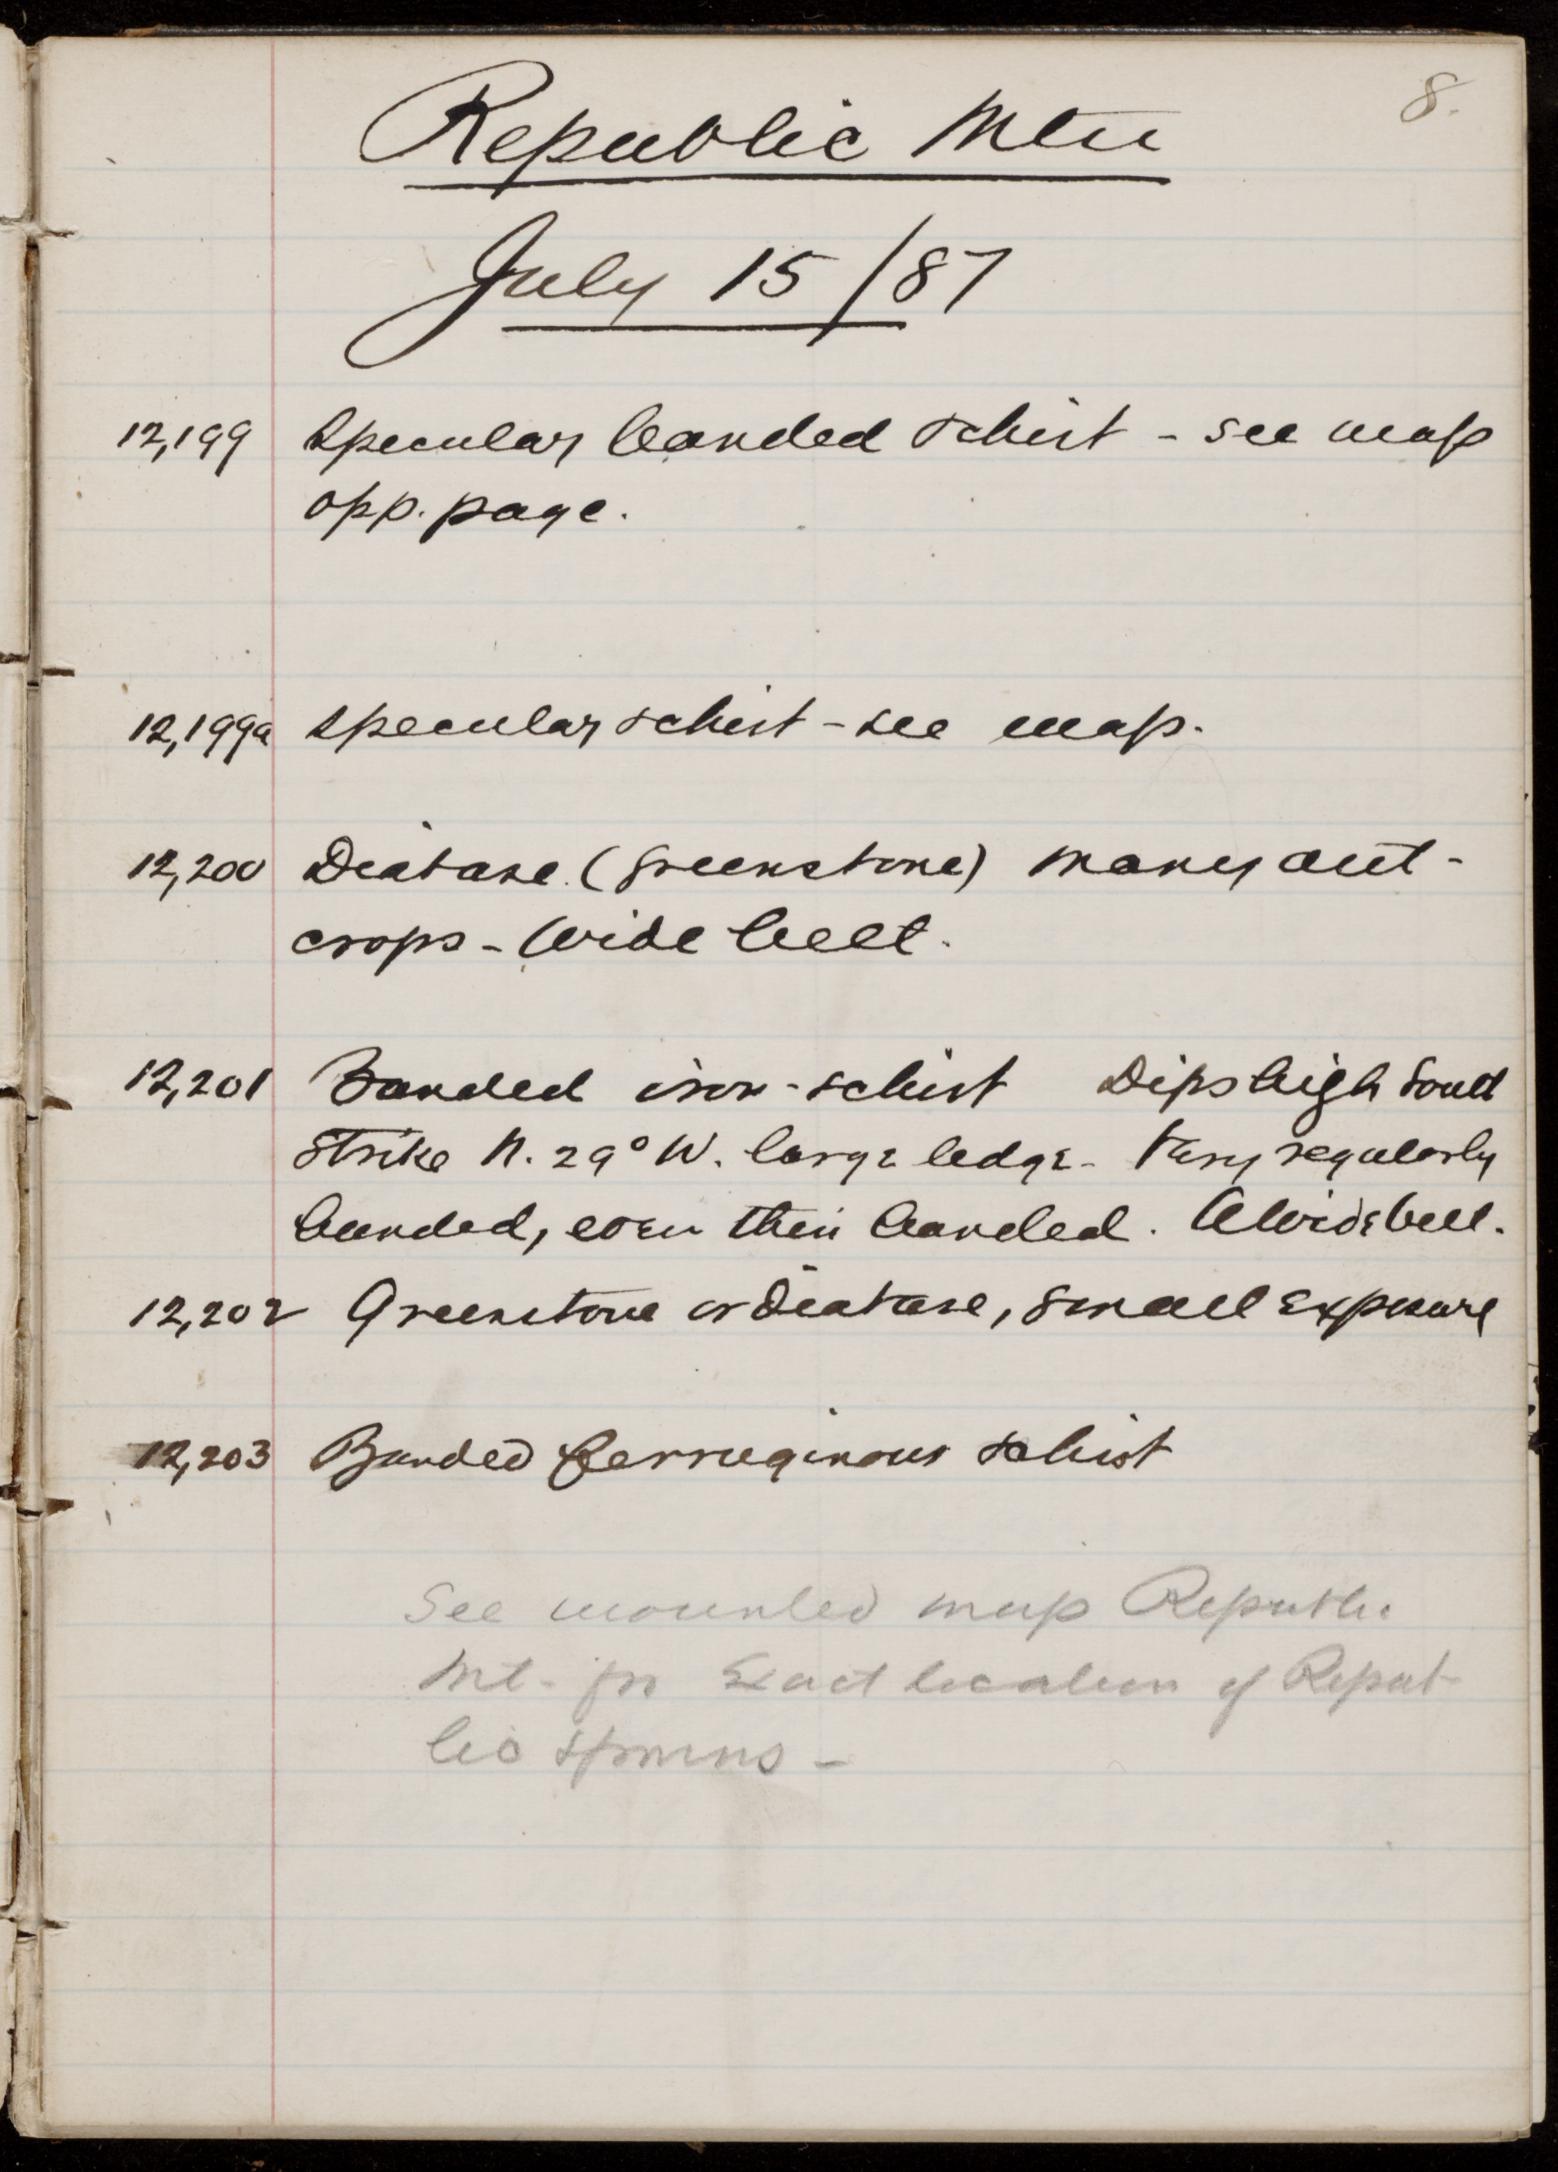 8.
Republic Mtn
July 15/87
12,199 Specular banded schist - see map
opp. page.
12,199a Specular schist - see map.
12,200 Diabase (Greenstone) many out-
crops - Wide belt.
12,201 Banded iron-schist Dips high South
Strike N. 29° W. large ledge - Very regularly
banded, even thin banded. A wide belt.
12,202 Greenstone or Diabase, small exposure
12,203 Banded ferruginous schist
See mounted map Republic
Mt. for exact location of Repub-
lic spmns -